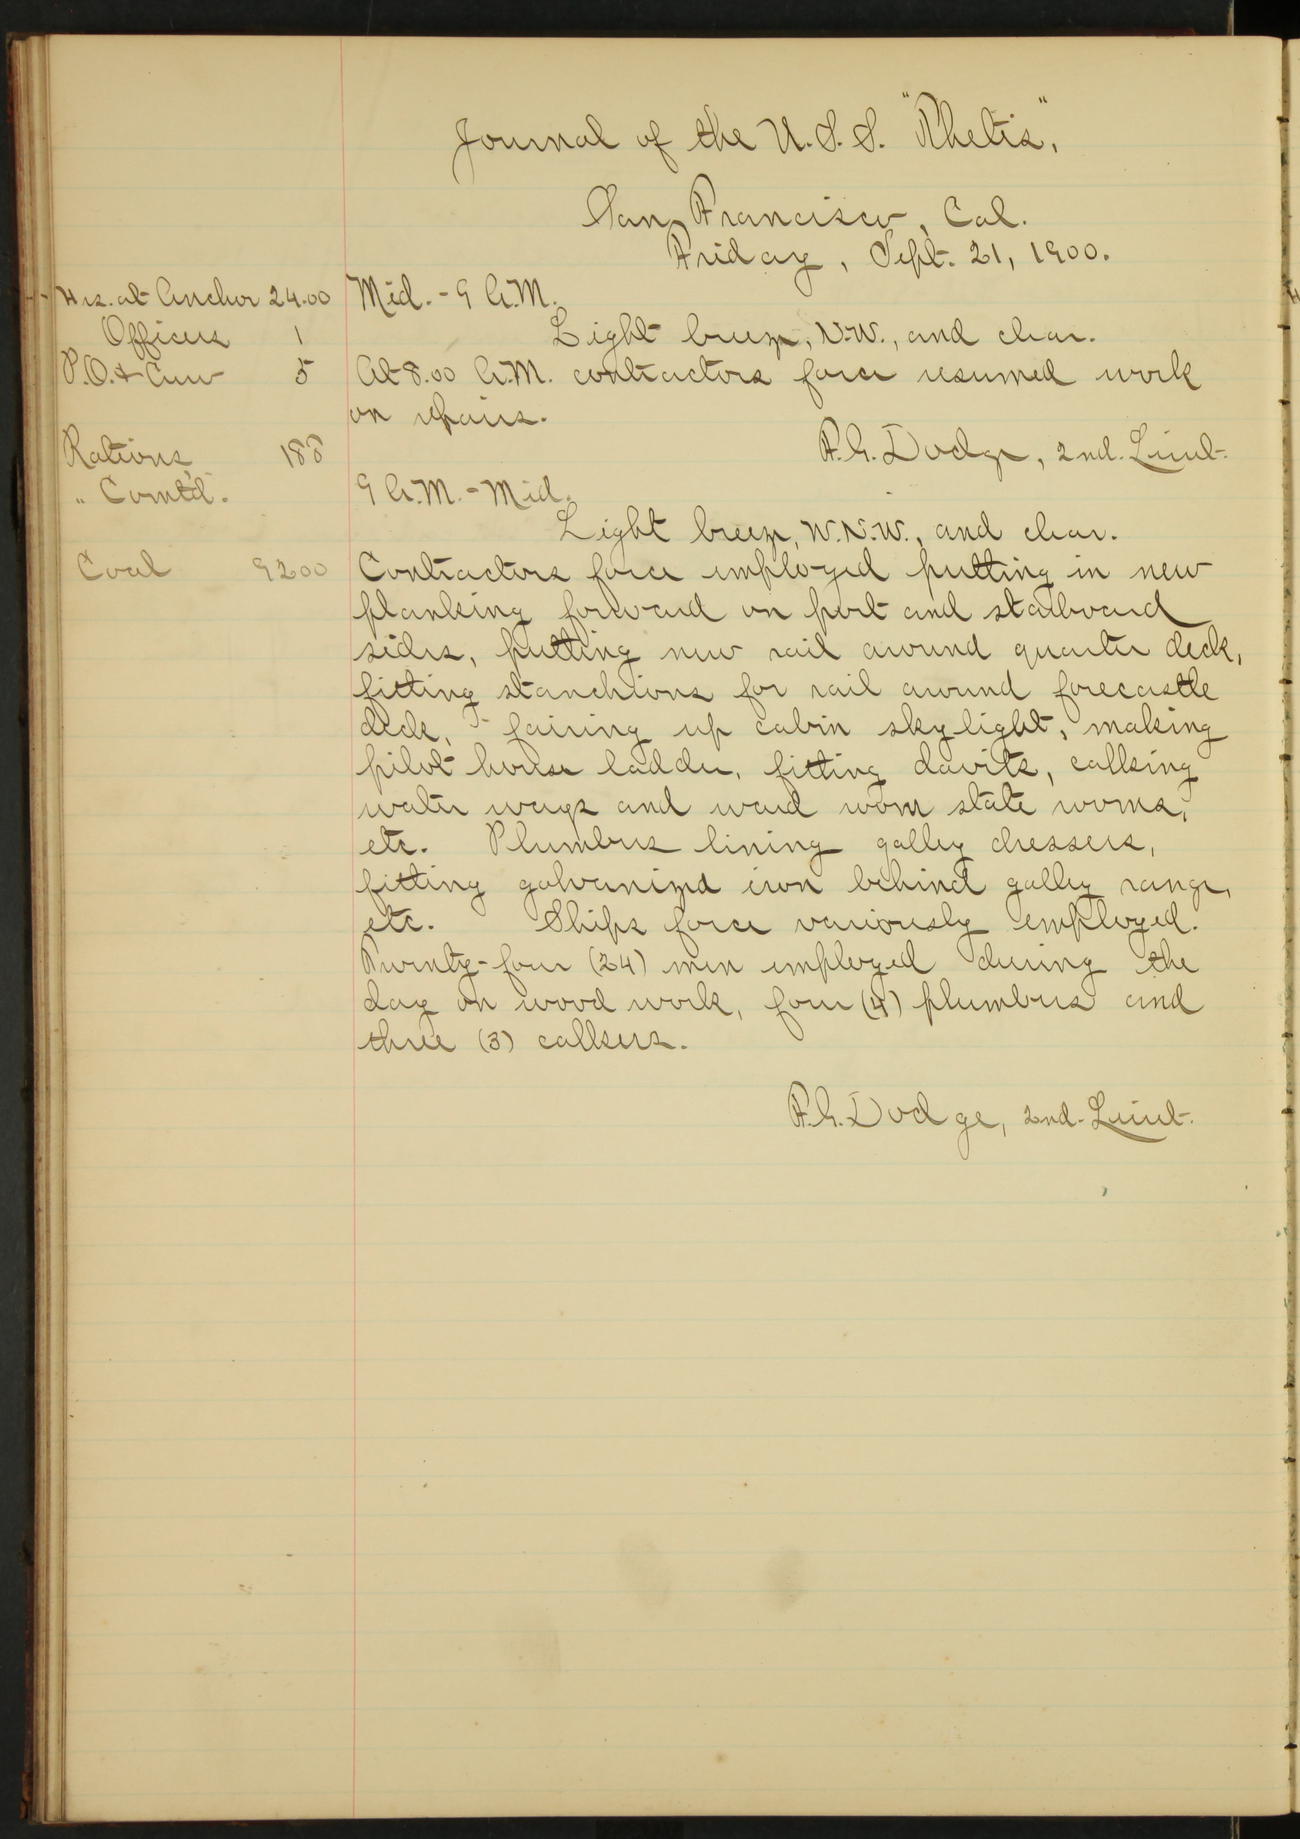 Journal of the U.S.S. "Thetis",
San Francisco, Cal.
Friday, Sept. 21, 1900.
Hrs. at Anchor 24.00 Mid. - 9 A.M.
Officers 1 Light breeze, N.W., and clear.
P.O. & Crew 5 At 8.00 A.M. contractors force resumed work
on repairs.
Rations 188 F.G. Dodge, 2nd. Lieut.
" Comt'd. 9 A.M. - Mid.
Light breeze, W.N.W., and clear.
Coal 9200 Contractors force employed putting in new
planking forward on port and starboard
sides, putting new rail around quarter deck,
fitting stanchions for rail around forecastle
deck, fairing up cabin skylight, making
pilot house ladder, fitting davits, calking
water ways and ward room state rooms,
etc. Plumbers lining galley dressers,
fitting galvanized iron behind galley range,
etc. Ships force variously employed.
Twenty-four (24) men employed during the
day on wood work, four (4) plumbers and
three (3) calkers.
F.G. Dodge, 2nd. Lieut.